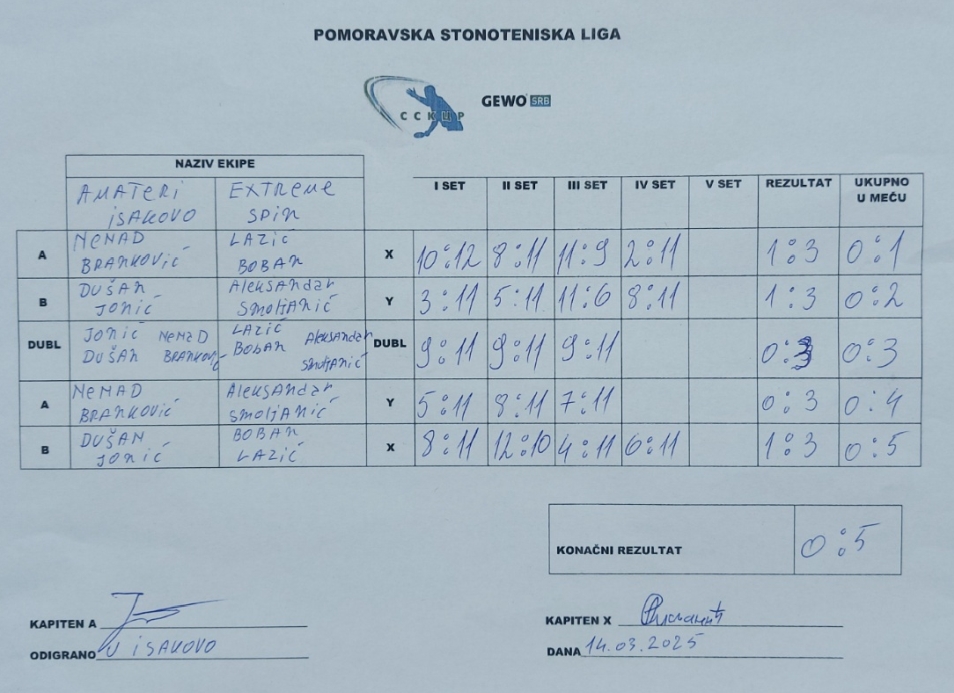 POMORAVSKA STONOTENISKA LIGA
ССКЦР
GEWO SRB
NAZIV EKIPE
AMATERI ISAKOVO EXTREME SPIN I SET II SET III SET IV SET V SET REZULTAT UKUPNO U MEČU
A NENAD BRANKOVIĆ LAZIĆ BOBAN X 10:12 8:11 11:9 2:11 1:3 0:1
B DUŠAN JONIĆ Aleksandar SMOLJANIĆ Y 3:11 5:11 11:6 8:11 1:3 0:2
DUBL JONIĆ DUŠAN NENAD BRANKOVIĆ LAZIĆ BOBAN Aleksandar SMOLJANIĆ DUBL 9:11 9:11 9:11 0:3 0:3
A NENAD BRANKOVIĆ Aleksandar SMOLJANIĆ Y 5:11 8:11 7:11 0:3 0:4
B DUŠAN JONIĆ BOBAN LAZIĆ X 8:11 12:10 4:11 6:11 1:3 0:5
KONAČNI REZULTAT 0:5
KAPITEN A
KAPITEN X
ODIGRANO U ISAKOVO
DANA 14.03.2025